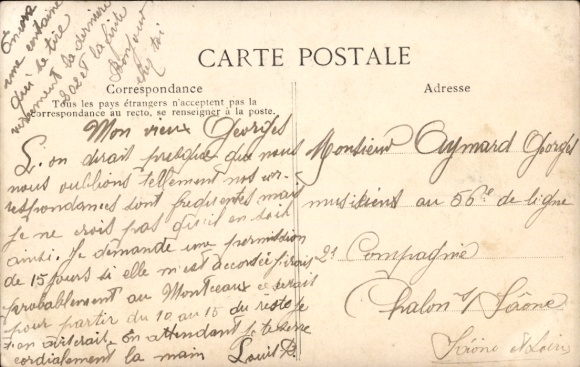 Encore
une centaine
qui se tire
vivement la dernière
202 et la fuite
Bonjour
chez toi
CARTE POSTALE
Correspondance
Tous les pays étrangers n'acceptent pas la
correspondance au recto, se renseigner à la poste.
Mon vieux Georges
L'on dirait presque que nous
nous oublions tellement nos cor-
respondances sont fréquentes mais
je ne crois pas qu'il en soit
ainsi. Je demande une permission
de 15 jours si elle m'est accordée j'irais
probablement au Montceaux ce serait
pour partir du 10 au 15 du reste je
t'en avertirais. En attendant je te serre
cordialement la main Louis D.
Adresse
Monsieur Aymard Georges
musicien au 56e de ligne
2e Compagnie
Chalon s/ Saône
Saône et Loire